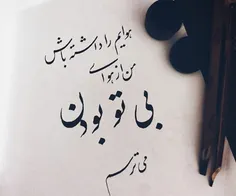 هوایم را داشته باش
من از هوای
بی تو بودن
می ترسم